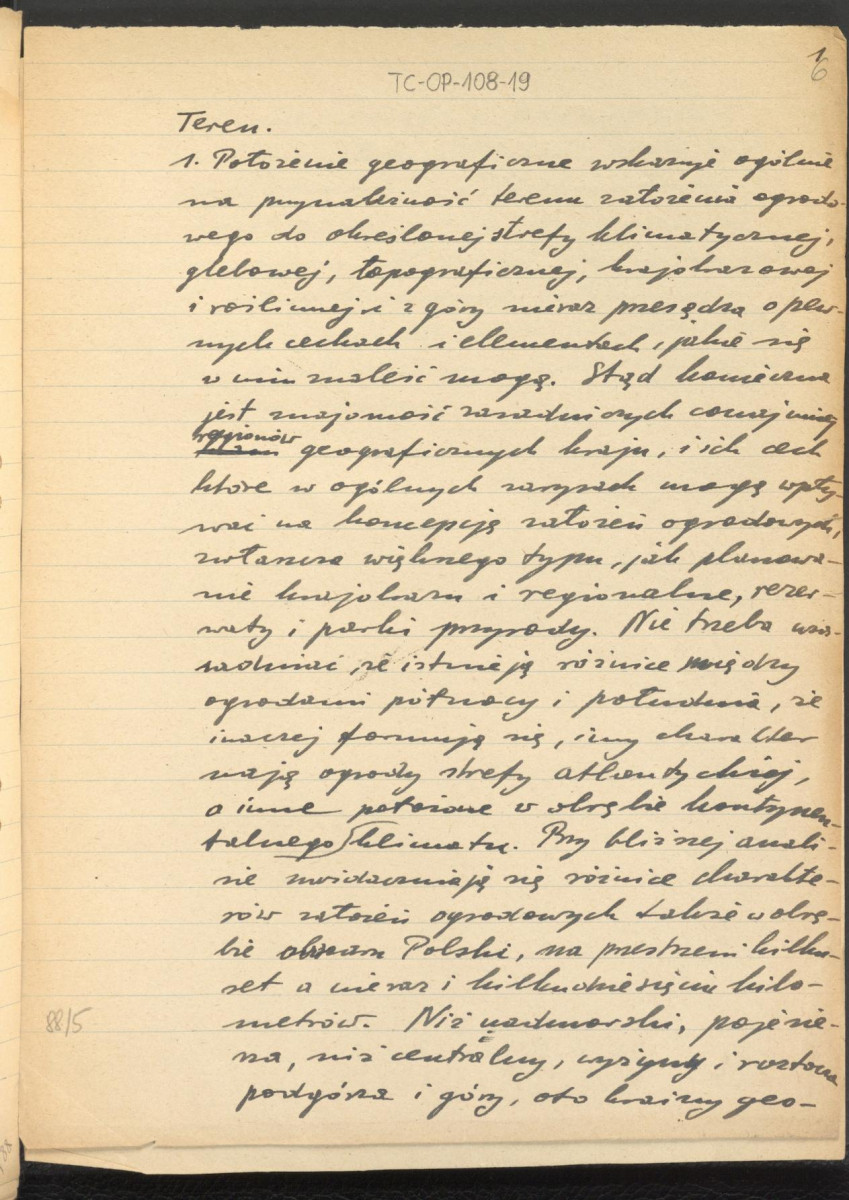 1
6
TC-OP-108-19
Teren.
1. Położenie geograficzne wskazuje ogólnie
na przynależność terenu założenia ogrodo-
wego do określonej strefy klimatycznej,
glebowej, topograficznej, krajobrazowej
i roślinnej i z góry nieraz przesądza o pew-
nych cechach i elementach, jakie się
w nim znaleść mogą. Stąd konieczna
jest znajomość zasadniczych conajmniej
regionów
geograficznych kraju, i ich cech
które w ogólnych zarysach mogą wpły-
wać na koncepcję założeń ogrodowych,
zwłaszcza większego typu, jak planowa-
nie krajobrazu i regionalne, rezer-
waty i parki przyrody. Nie trzeba uza-
sadniać, że istnieją różnice między
ogrodami północy i południa, że
inaczej formują się, inny charakter
mają ogrody strefy atlantyckiej,
a inne położone w obrębie kontynen-
talnego klimatu. Przy bliższej anali-
zie uwidaczniają się różnice charakte-
rów założeń ogrodowych także w obrę-
bie obszaru Polski, na przestrzeni kilku-
set a nieraz i kilkudziesięciu kilo-
metrów. Niż nadmorski, pojezie-
rza, niż centralny, wyżyny i roztocza
podgórza i góry, oto krainy geo-
88/5